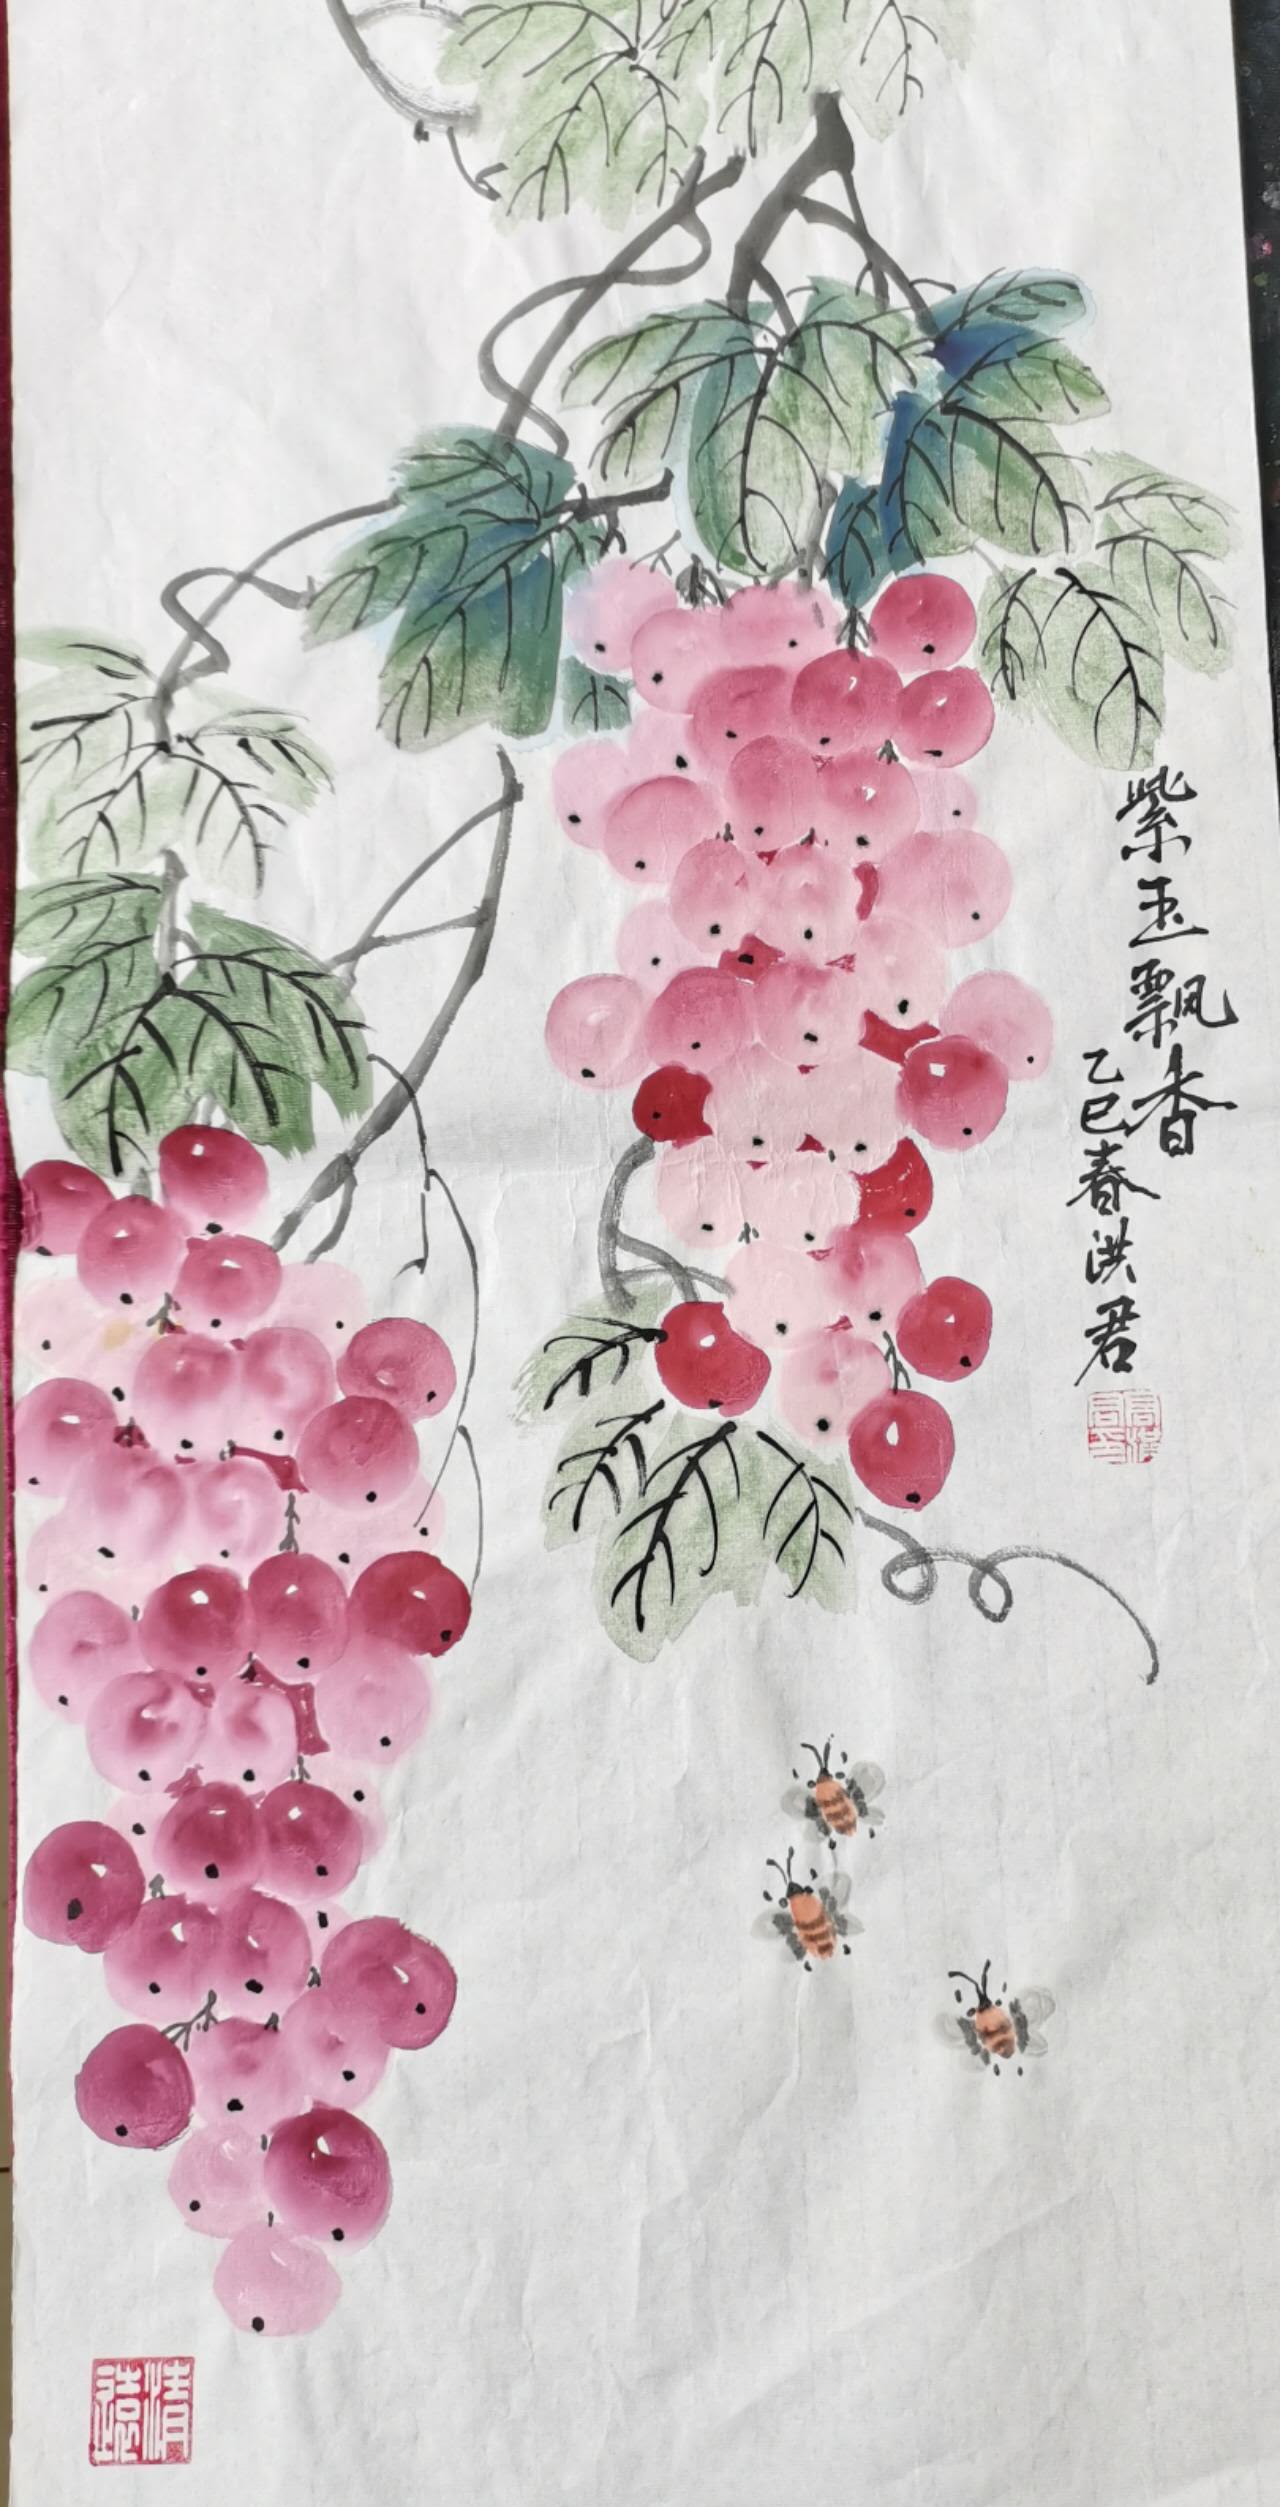 紫玉飘香
乙巳春洪君
清远